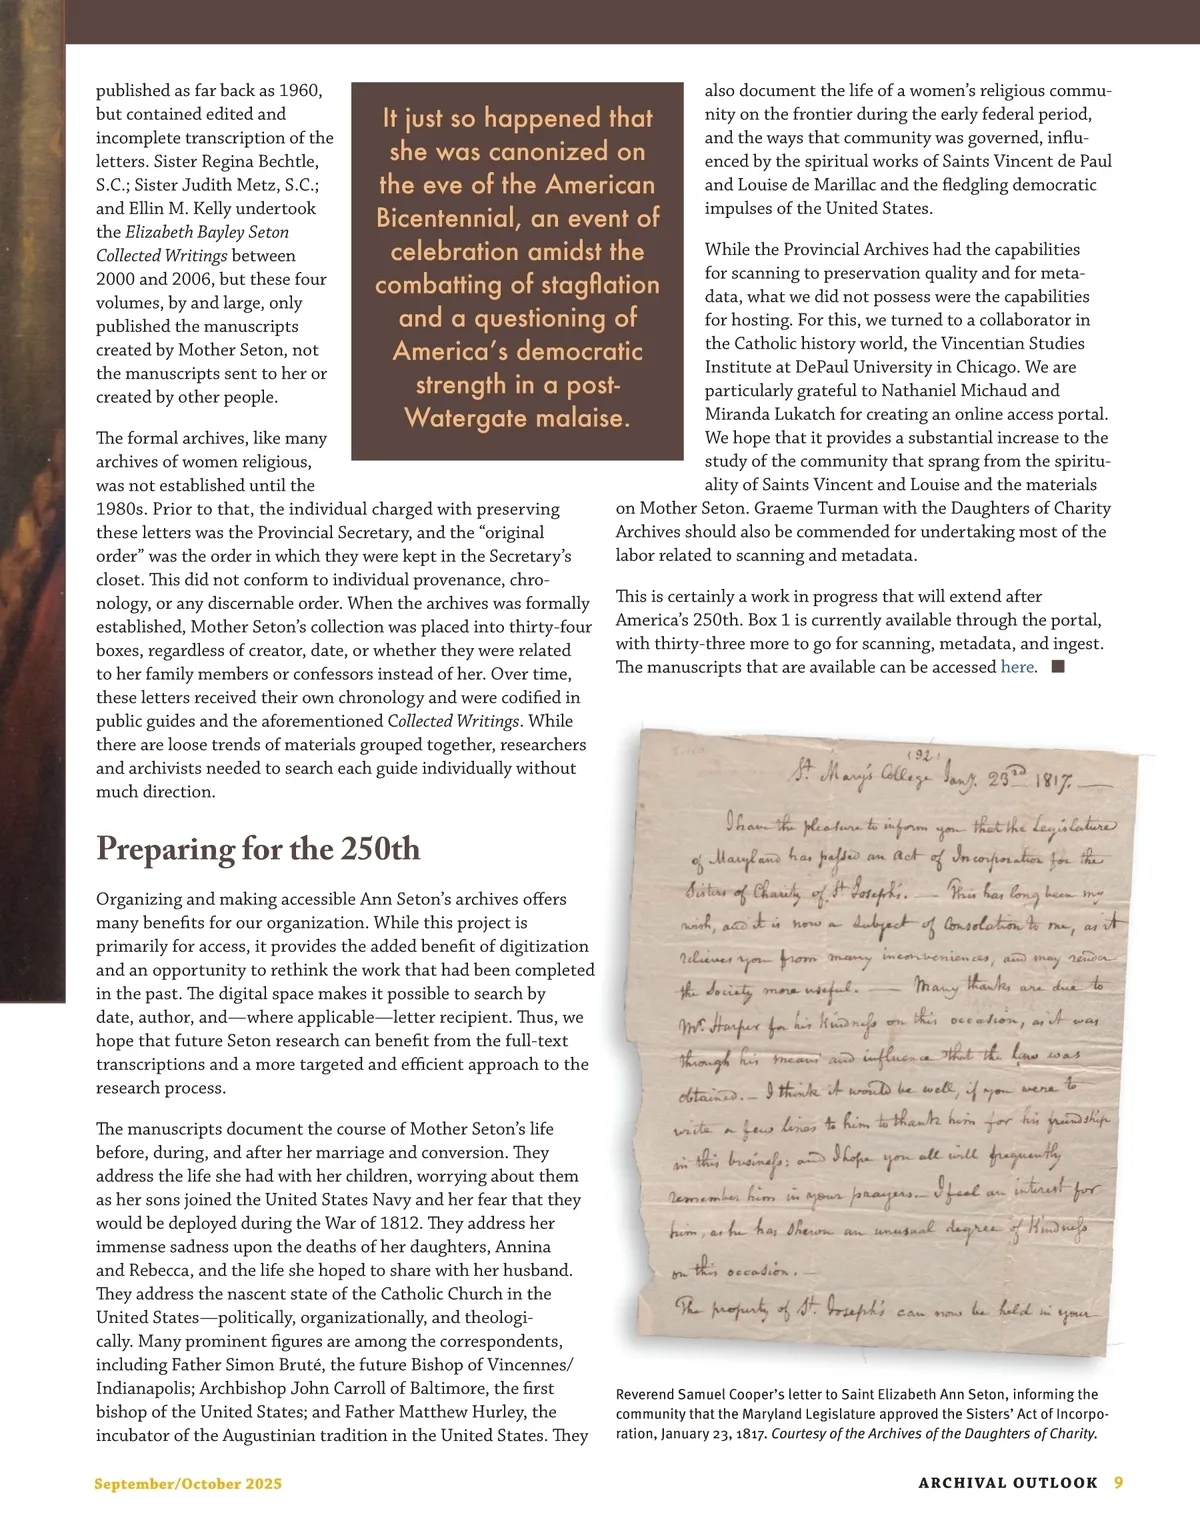 published as far back as 1960,
but contained edited and
incomplete transcription of the
letters. Sister Regina Bechtle,
S.C.; Sister Judith Metz, S.C.;
and Ellin M. Kelly undertook
the Elizabeth Bayley Seton
Collected Writings between
2000 and 2006, but these four
volumes, by and large, only
published the manuscripts
created by Mother Seton, not
the manuscripts sent to her or
created by other people.
The formal archives, like many
archives of women religious,
was not established until the
1980s. Prior to that, the individual charged with preserving
these letters was the Provincial Secretary, and the “original
order” was the order in which they were kept in the Secretary’s
closet. This did not conform to individual provenance, chro-
nology, or any discernable order. When the archives was formally
established, Mother Seton’s collection was placed into thirty-four
boxes, regardless of creator, date, or whether they were related
to her family members or confessors instead of her. Over time,
these letters received their own chronology and were codified in
public guides and the aforementioned Collected Writings. While
there are loose trends of materials grouped together, researchers
and archivists needed to search each guide individually without
much direction.
Preparing for the 250th
Organizing and making accessible Ann Seton’s archives offers
many benefits for our organization. While this project is
primarily for access, it provides the added benefit of digitization
and an opportunity to rethink the work that had been completed
in the past. The digital space makes it possible to search by
date, author, and—where applicable—letter recipient. Thus, we
hope that future Seton research can benefit from the full-text
transcriptions and a more targeted and efficient approach to the
research process.
The manuscripts document the course of Mother Seton’s life
before, during, and after her marriage and conversion. They
address the life she had with her children, worrying about them
as her sons joined the United States Navy and her fear that they
would be deployed during the War of 1812. They address her
immense sadness upon the deaths of her daughters, Annina
and Rebecca, and the life she hoped to share with her husband.
They address the nascent state of the Catholic Church in the
United States—politically, organizationally, and theologi-
cally. Many prominent figures are among the correspondents,
including Father Simon Bruté, the future Bishop of Vincennes/
Indianapolis; Archbishop John Carroll of Baltimore, the first
bishop of the United States; and Father Matthew Hurley, the
incubator of the Augustinian tradition in the United States. They
It just so happened that
she was canonized on
the eve of the American
Bicentennial, an event of
celebration amidst the
combatting of stagflation
and a questioning of
America’s democratic
strength in a post-
Watergate malaise.
also document the life of a women’s religious commu-
nity on the frontier during the early federal period,
and the ways that community was governed, influ-
enced by the spiritual works of Saints Vincent de Paul
and Louise de Marillac and the fledgling democratic
impulses of the United States.
While the Provincial Archives had the capabilities
for scanning to preservation quality and for meta-
data, what we did not possess were the capabilities
for hosting. For this, we turned to a collaborator in
the Catholic history world, the Vincentian Studies
Institute at DePaul University in Chicago. We are
particularly grateful to Nathaniel Michaud and
Miranda Lukatch for creating an online access portal.
We hope that it provides a substantial increase to the
study of the community that sprang from the spiritu-
ality of Saints Vincent and Louise and the materials
on Mother Seton. Graeme Turman with the Daughters of Charity
Archives should also be commended for undertaking most of the
labor related to scanning and metadata.
This is certainly a work in progress that will extend after
America’s 250th. Box 1 is currently available through the portal,
with thirty-three more to go for scanning, metadata, and ingest.
The manuscripts that are available can be accessed here.
(92)
St. Mary's College Jany. 23rd 1817.—
I have the pleasure to inform you that the Legislature
of Maryland has passed an act of Incorporation for the
Sisters of Charity of St Joseph's. — This has long been my
wish, and it is now a subject of Consolation to me, as it
relieves you from many inconveniences, and may render
the Society more useful. — Many thanks are due to
Mr. Harper for his Kindness on this occasion, as it was
through his means and influence that the law was
obtained. — I think it would be well, if you were to
write a few lines to him to thank him for his friendship
in this business; and I hope you all will frequently
remember him in your prayers. — I feel an interest for
him, as he has shewn an unusual degree of Kindness
on this occasion. —
The property of St. Joseph's can now be held in your
Reverend Samuel Cooper’s letter to Saint Elizabeth Ann Seton, informing the
community that the Maryland Legislature approved the Sisters’ Act of Incorpo-
ration, January 23, 1817. Courtesy of the Archives of the Daughters of Charity.
September/October 2025
ARCHIVAL OUTLOOK 9